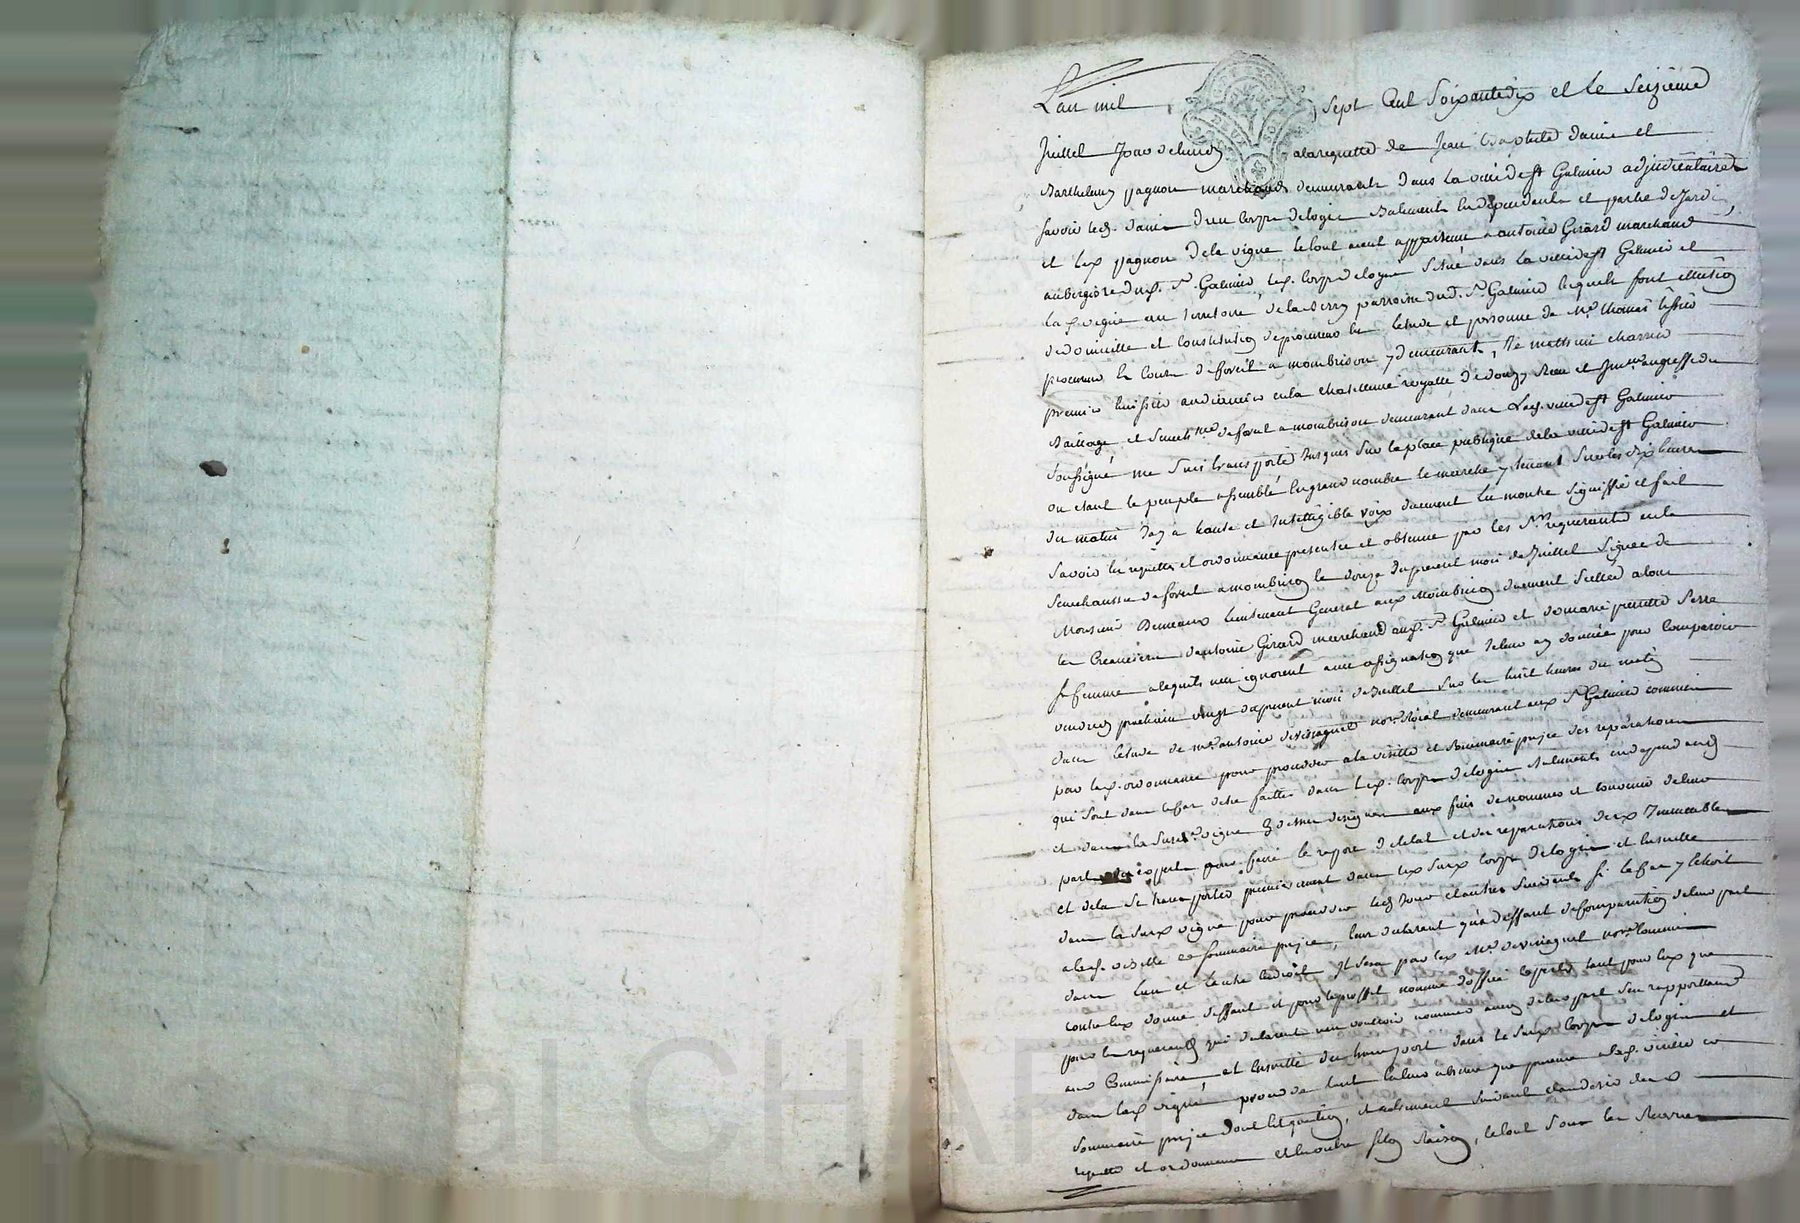 L'an mil sept Cent Soixantedix et le Seizieme
Juillet Jour de lundy alarequette de Jean Baptiste Damie et
Barthelemy pagnon marchands demeurants dans la ville de st Galmier adjudicataires
Savoir led. Damie d'un Corps delogis Batiments En dependants et partie de Jardin
et led. pagnon dela vigne letout ayant appartenu a antoine Girard marchand
aubergiste dud. St. Galmier, led. Corps delogis Situé dans la ville de st Galmier et
lad. vigne au territoire delaserry parroisse dud. St. Galmier lequels font ellection
dedomicille et Constitution deprocureur En letude et personne de Me. thomas
procureur En Cours deforest a montbrison y demeurant, Je mathieu charrin
premier huissier audiancier enla chatellenie royalle de donzy Reçu et Immle. augreffe du
Baillage et Senechaussée deforest a montbrison demeurant dans Lad. ville de st Galmier
Soussigné me Suis transporté Jusques Sur laplace publique dela ville de st Galmier
ou etant le peuple assemblé En grand nombre le marché y tenant Surles dix heures
du matin J'ay a haute et Intelligible voix duement lu montré Signiffié et fait
Savoir les requette et ordonnance presentée et obtenue par les Srs. requerants en la
Senechaussée deforest a montbrison le douze dupresent mois de Juillet Signée de
Monsieur Demeaux lieutenant General aux Montbrison duement Scellée a tous
les Creanciers d'antoine Girard marchand aud. St. Galmier et de marie pierrette Serre
Sa femme alequels n'en ignorent avec assignation que Jeleur ay donnée pour Comparoir
vendredy prochain vingt dupresent mois de Juillet Sur les huit heures du matin
dans letude de me. antoine devissaguet nore. Royal demeurant aux St. Galmier commis
par lad. ordonnance pour proceder a la visitte et Sommaire prisée des reparations
qui Sont dans le Cas detre faittes dans led. Corps delogis Batiments en dependants
et dans la Susd. vigne Cy dessus designée aux fins de nommer et Convenir deleur
part d'expert pour faire le raport de l'etat et des reparations desd. Immeubles
et dela Se transporter premierement dans led. Susd. Corps delogis et Ensuitte
dans la Susd. vigne pour proceder lesd. Jour et autres Suivants Si le Cas y Echoit
alad. visitte et Sommaire prisée, leur declarant qu'a deffaut de Comparution deleur part
dans l'un et l'autre endroit Il Sera par led. Me. devissaguet nore. Commis
contre Eux donné deffaut et pour leproffit nommé d'office Experts tant pour Eux que
pour les requerants qui declarent n'en vouloir nommer aucun deleur part S'en rapportant
aud. Commissaire, et Ensuitte du transport dans le Susd. Corps delogis et
dans lad. vigne, procedé tant En leur absence que presence alad. visitte et
Sommaire prisée dont Est question, et autrement Suivant
requette et ordonnance et En outre Selon Raison, letout Sous les Reserves